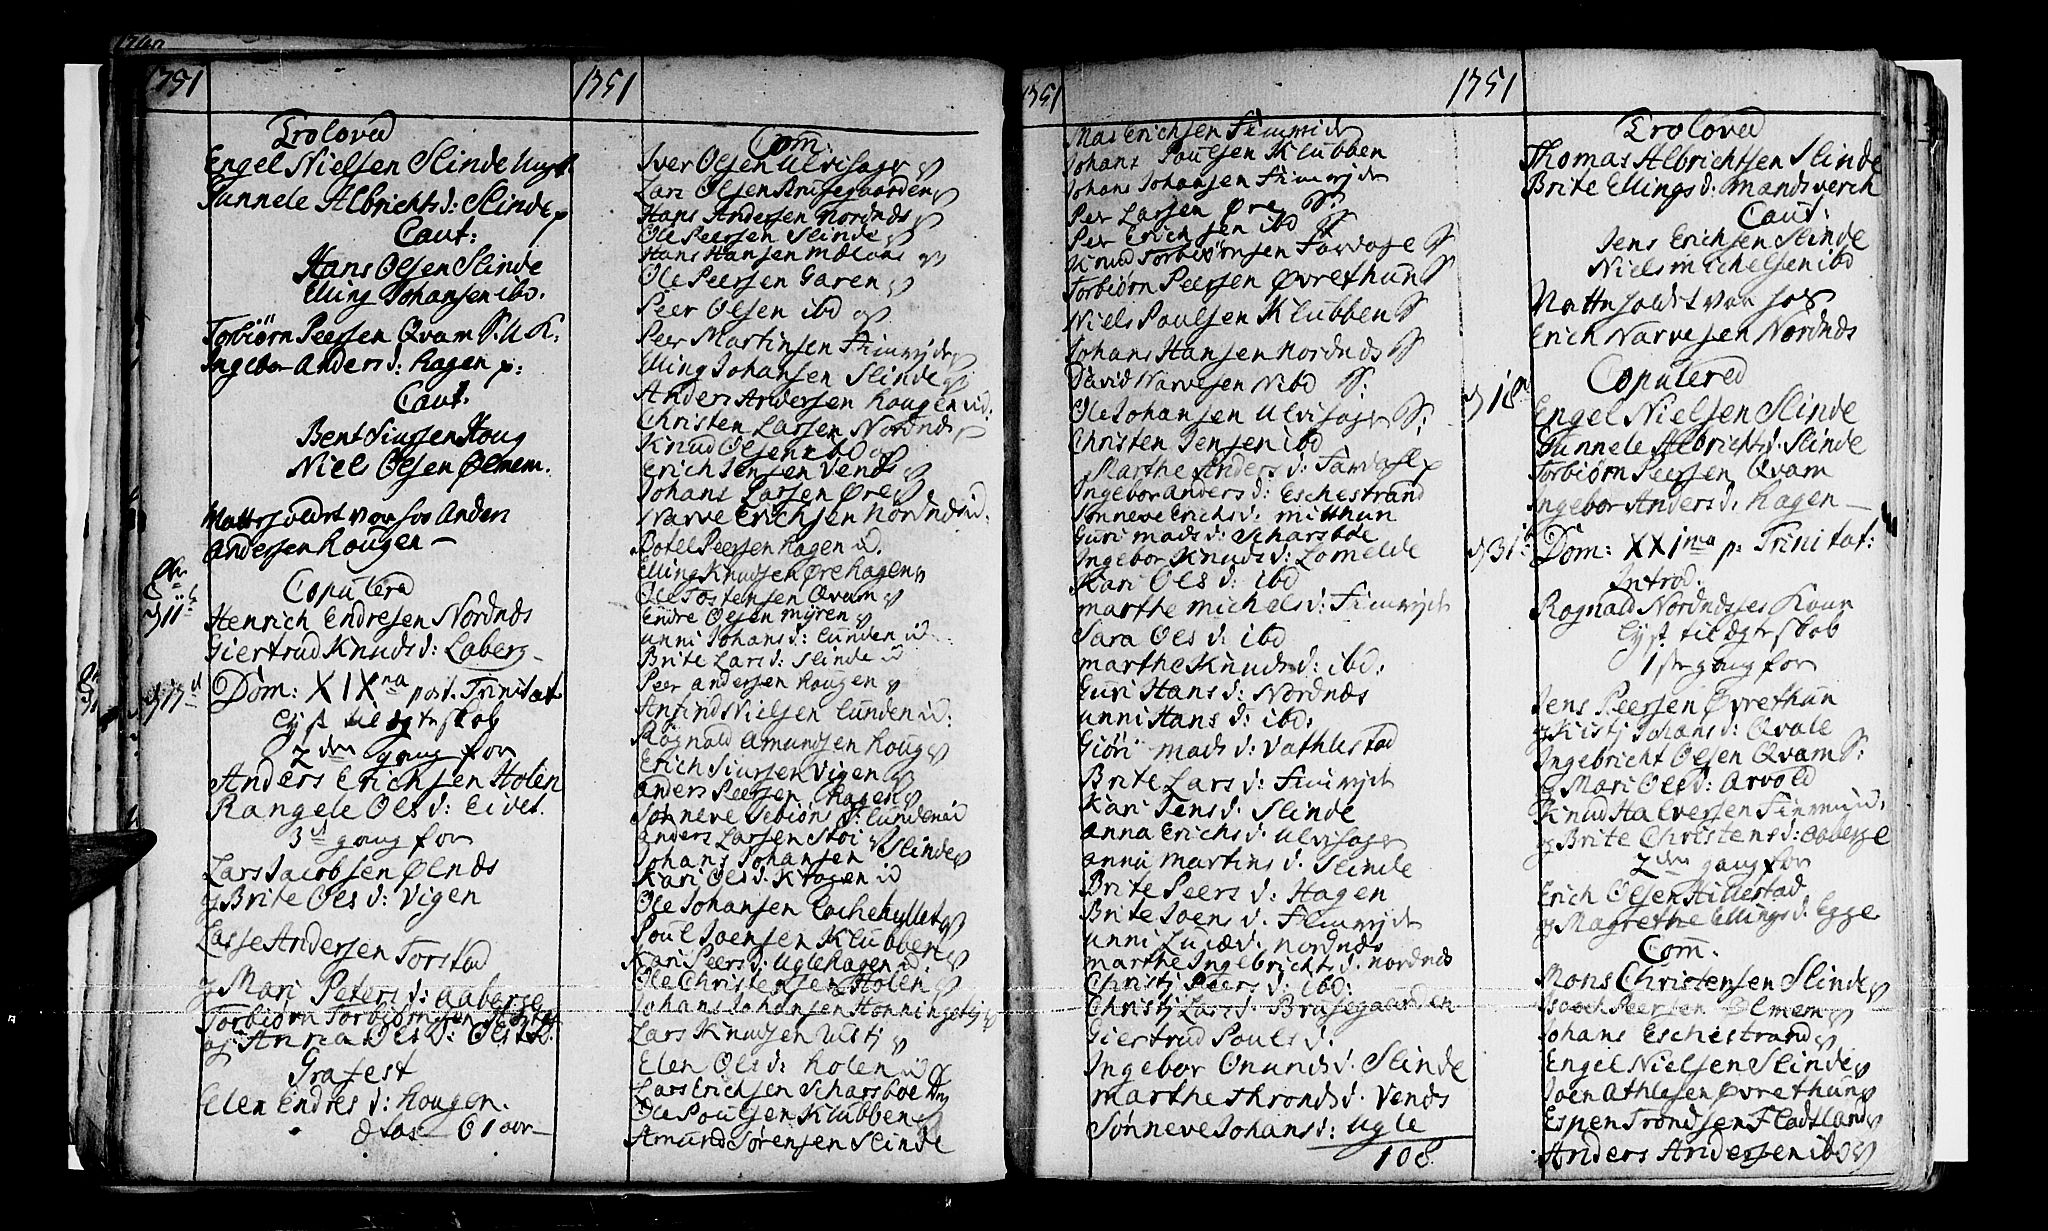 1751
Trolovid
Engel Nielsen Slinde
Gunnele Albrichts d: Slinde p
Caut:
Hans Olsen Slinde
Elling Johansen ibd.
Torbiørn Peersen Qvam S. U K:
Ingebor Anders d: Hagen p:
Caut.
Bent Siursen Houg
Niel Olsen Ølmem.
Natthholdt var hos Anders
Andersen Hougen
Copulered
d 11
Henrich Endresen Nordnds
Giertrud Knuds d: Laberg
d 17
Dom: XIX na post. Trinitat
Lyst til Egteskab
2 den gang for
Anders Erichsen Holen
Rangele Oles d: Eidet.
3 d gang for
Lars Jacobsen Ølnds
og Brite Oles d: Vigen
Lasse Andersen Torstad
og Mari Peters d: aaberge
Torbiørn Torbiørnsen
og Anna Oles d:
Grafest
Elen Endres d: Hougen.
61 aar
1751
Com:
Iver Olsen Ulvisager
Lars Olsen Brusegaarden
Hans Andersen Nordnds
Ole Peersen Slinde
Hans Hansen
Ole Peersen Garen
Peer Olsen ibd
Peer Martinsen Fimrijte
Elling Johansen Slinde
Anders Andersen Hougen id:
Christen Larsen Nordnds
Knud Olsen ibd
Erich Jensen Vends
Johans Larsen Øre
Narve Erichsen Nordnds id.
Botel Peersen Hagen id.
Elling Knudsen Ørehagen
Ole Tostensen Qvam
Endre Olsen Myren
Unni Johans d: Lunden id
Brite Lars d: Slinde id
Peer Andersen Hougen
Anfind Nielsen Lunden id:
Rognald Amundsen Houg
Erich Siursen Vigen
Anders Peersen Hagen
Sønneve Sebiøns d: Lunden id
Anders Larsen Stoi
Johans Johansen Slinde
Kari Oles d. Kragen id
Ole Johansen Lochehyllet
Poul Joensen Klubben
Kari Peers d: Uglehagen id.
Ole Christensen Holen
Johans Johansen Honningstij
Lars Knudsen
Elen Oles d: Holen id
Lars Erichsen Scharsboe
Ole Poulsen Klubben
Amund Sørensen Slinde
1751
Mas Erichsen Fimrijte
Johans Poulsen Klubben
Johans Johansen Fimrijte
Per Larsen Øre S:
Per Erichsen ibd S
Knud Torbiørnsen Fardahl S
Torbiørn Peersen Øvrethun S
Niels Poulsen Klubben S
Johans Hansen Nordnds S
David Narvesen N ibd S:
Ole Johansen Ulvisager S:
Christen Jensen ibd
Marthe Anders d: Fardahl p
Ingebor Anders d: Eschestrand
Sønneve Erichs d: Mitthun
Guri Mads d: Scharsboe
Ingebor Knuds d: Lomelde
Kari Oles d: ibd
Marthe Michels d: Fimrijte
Sara Oles d: ibd
Marthe Knuds d: ibd:
Guri Hans d: Nordnds
Unni Hans d: ibd:
Giøri Mads d: Vathlestad
Brite Lars d: Fimrijte
Kari Jens d: Slinde
Anna Erichs d: Ulvisager
Anni Martins d. Slinde
Brite Peers d: Hagen
Brite Joens d. Fimrijte
Unni Lucæ d. Nordnds
Marthe Ingebrichts d: Nordnds
Christj Peers d: ibd:
Christj Lars d: Brusegaarden
Giertrud Pouls d:
Ingebor Onunds d. Slinde
Marthe Thronds d. Vends
Sønneve Johans d: Ugle
108
1751
Trolovid
Thomas Albrichtsen Slinde
Brite Ellings d: Mandsverch
Caut:
Jens Erichsen Slinde
Niels Michelsen ibd
Natthholdt var hos
Erich Narvesen Nordnds
Copulered
d 18
Engel Nielsen Slinde
Gunnele Albrichts d: Slinde
Torbiørn Peersen Qvam
Ingebor Anders d: Hagen
d 31
Dom: XXI ma p: Trinitat:
Introd.
Rognald Nordndses Koun
Lyst til Egteskab
1ste gang for
Jens Peersen Øvrethun
og Kistj Johans d: Qvale
Ingebricht Olsen Qvam S:
og Mari Oles d: Arvold
Knud Halversen Fimrijte
og Brite Christens d: aaberge
2 den gang for
Erich Olsen Hillestad
og Magrethe Ellings d: Egge
Com.
Mons Christensen Slinde
Isach Peersen Ølmem
Johans Eschestrand
Engel Nielsen Slinde
Joen Athlesen Øvrethun
Espen Trondsen Fladtland
Anders Andersen ibd